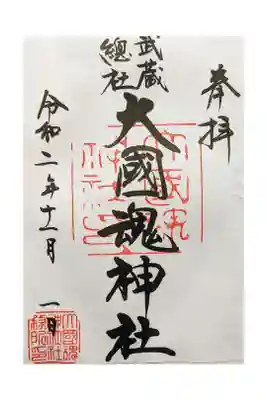 奉拝
武蔵
總社
大國魂神社
令和二年十一月一日